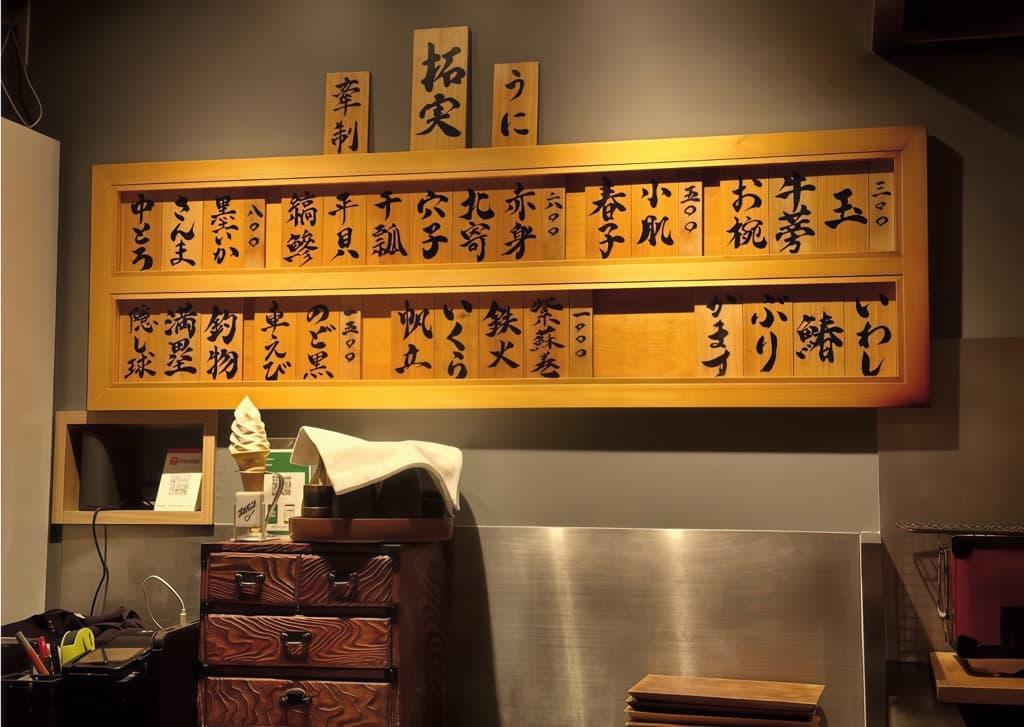 うに
拓実
牽制
三〇〇
玉
牛蒡
お椀
五〇〇
小肌
春子
六〇〇
赤身
北寄
穴子
干瓢
平貝
縞鯵
八〇〇
墨いか
さんま
中とろ
いわし
鰆
ぶり
かます
一〇〇〇
紫蘇巻
鉄火
いくら
帆立
一五〇〇
のど黒
車えび
釣物
満塁
隠し球